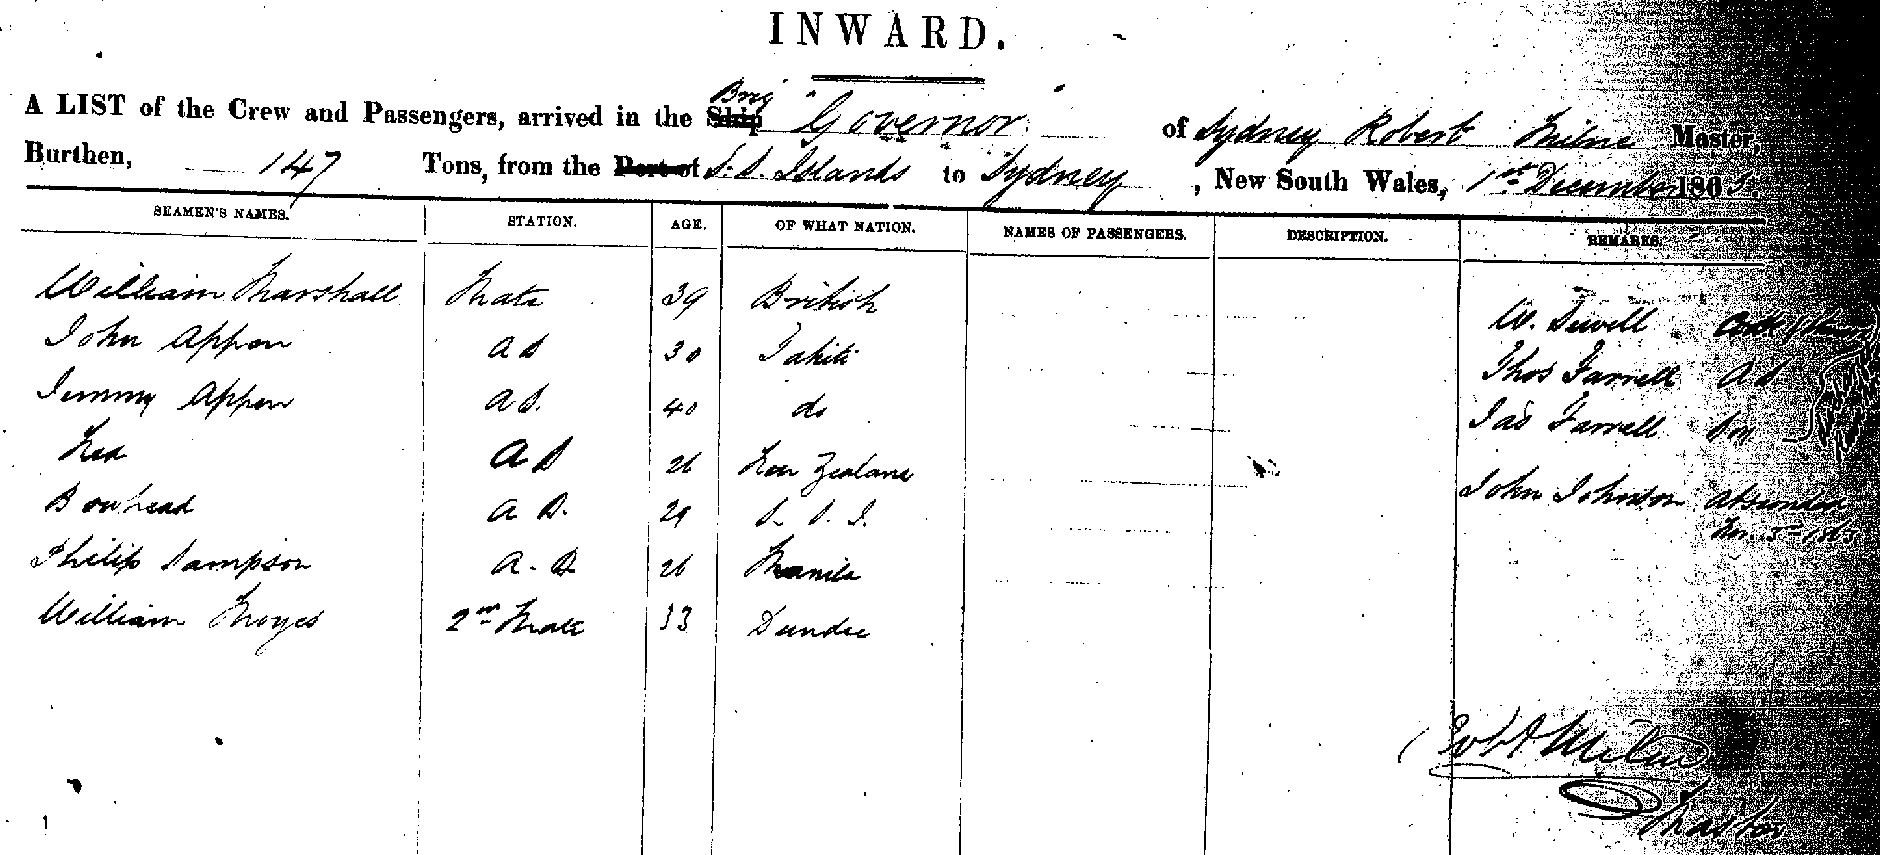 INWARD.
A LIST of the Crew and Passengers, arrived in the Ship Brig "Governor" of Sydney Robert Milne Master,
Burthen, 147 Tons, from the Port of S. S. Islands to Sydney, New South Wales, 1st December 1863
SEAMEN'S NAMES. STATION. AGE. OF WHAT NATION. NAMES OF PASSENGERS. DESCRIPTION. REMARKS.
William Marshall Mate 39 British
W. Sewell
John Appon A B 30 Tahiti
Thos Farrell A B
Jimmy Appon A B. 40 do
Jas Farrell Boy
Ned A B 26 New Zealand
John Johnston absconded
Bowhead A B. 29 S. S. I.
Nov. 5 - 1863
Philip Sampson A. B 26 Manila
William Moyes 2nd Mate 33 Dundee
Robt Milne
Master